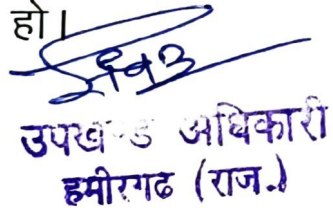 हो।
उपखण्ड अधिकारी
हमीरगढ (राज.)